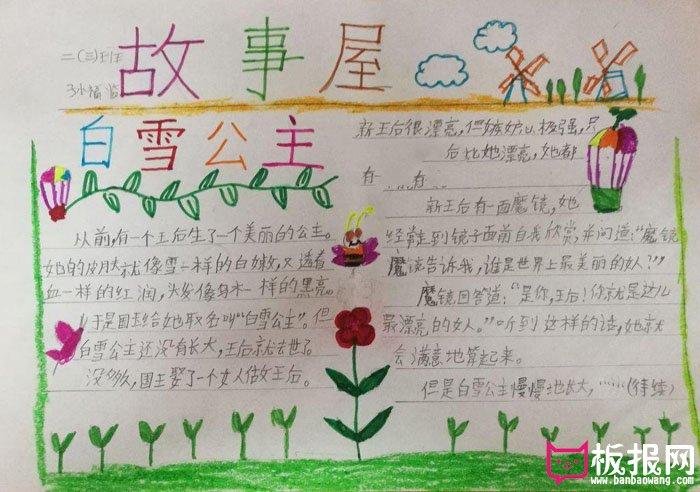 故事屋
二(三)班
白雪公主
从前,有一个王后生了一个美丽的公主。
她的皮肤就像雪一样的白嫩,又透着
血一样的红润,头发像乌木一样的黑亮。
于是国王给她取名叫“白雪公主”。但
白雪公主还没有长大,王后就去世了。
没多久,国王娶了一个女人做王后。
新王后很漂亮,但嫉妒心极强,只
后比她漂亮,她都
有……有
新王后有一面魔镜,她
经常走到镜子面前自我欣赏,并问道:“魔镜
魔镜告诉我,谁是世界上最美丽的女人?”
魔镜回答道:“是你,王后!你就是这儿
最漂亮的女人。”听到这样的话,她就
会满意地笑起来。
但是白雪公主慢慢地长大,……(待续)
板报网
www.banbaowang.com